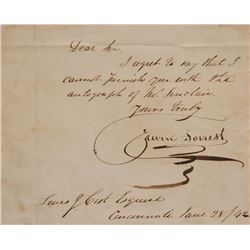 Dear Sir.
I regret to say that I
cannot furnish you with the
autograph of Mr. Sinclair.
Yours truly
Edwin Forrest
Lewis J Cist Esquire
Cincinnati June 28/46